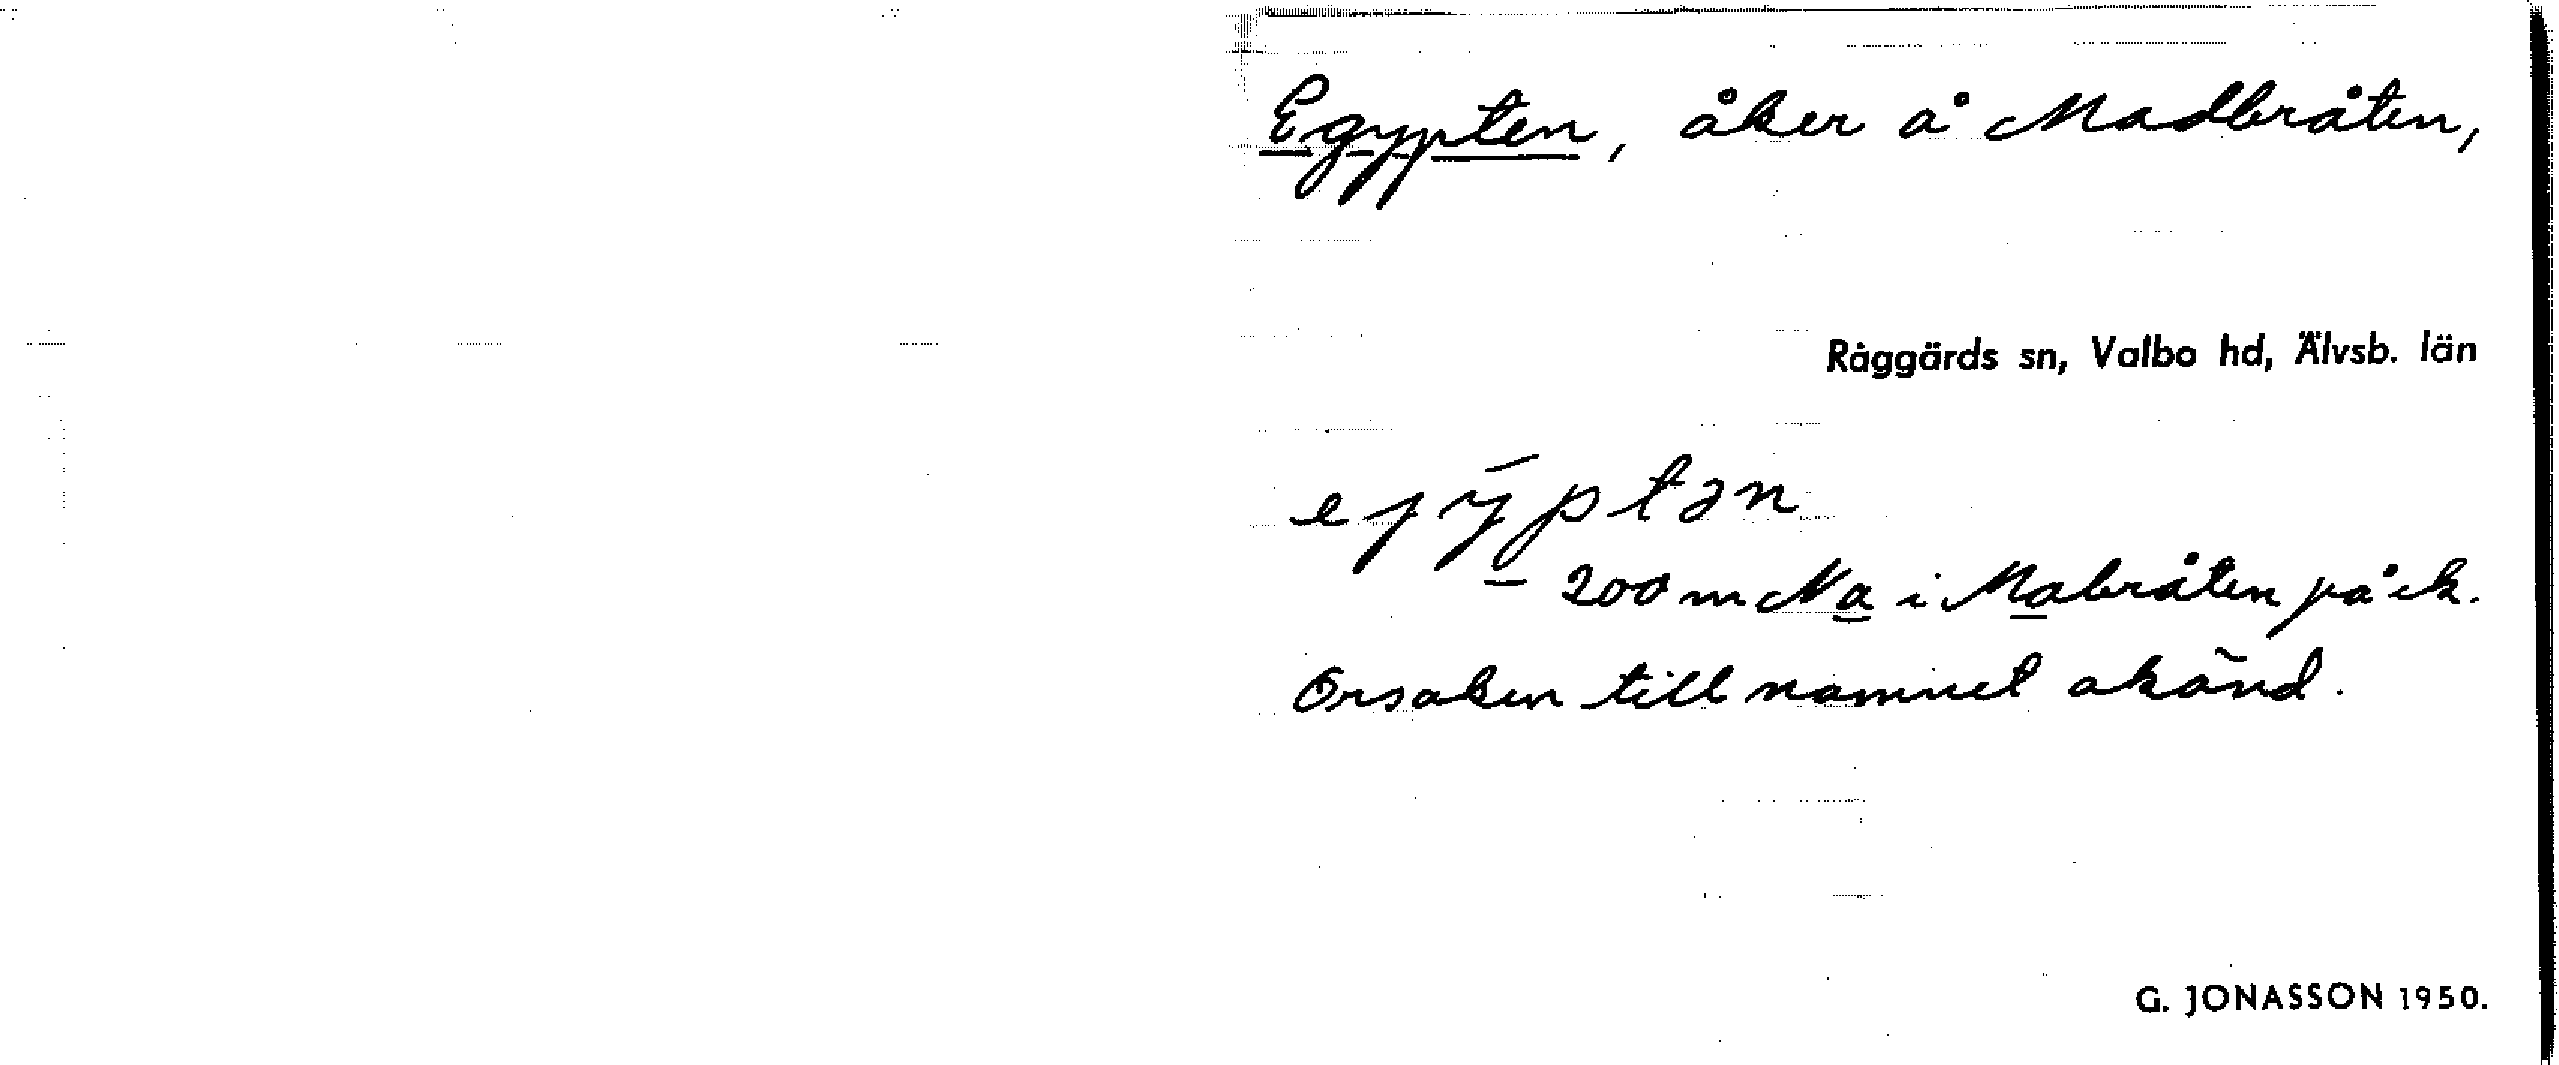 Egypten, åker å Madbråten,
Råggärds sn, Valbo hd, Älvsb. län
ejýptən
200 m Na i Mabråten på ek.
Orsaken till namnet okänd.
G. JONASSON 1950.